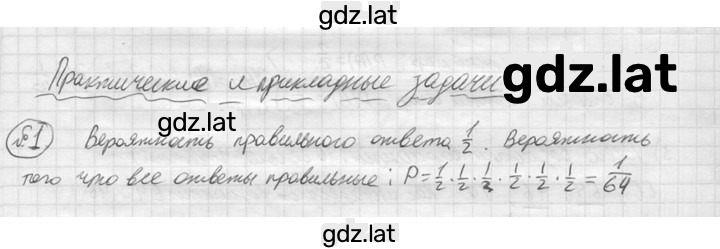 gdz.lat
Практические и прикладные задачи
gdz.lat
gdz.lat
№1 Вероятность правильного ответа 1/2. Вероятность
того что все ответы правильные: P = 1/2 · 1/2 · 1/2 · 1/2 · 1/2 · 1/2 = 1/64
gdz.lat